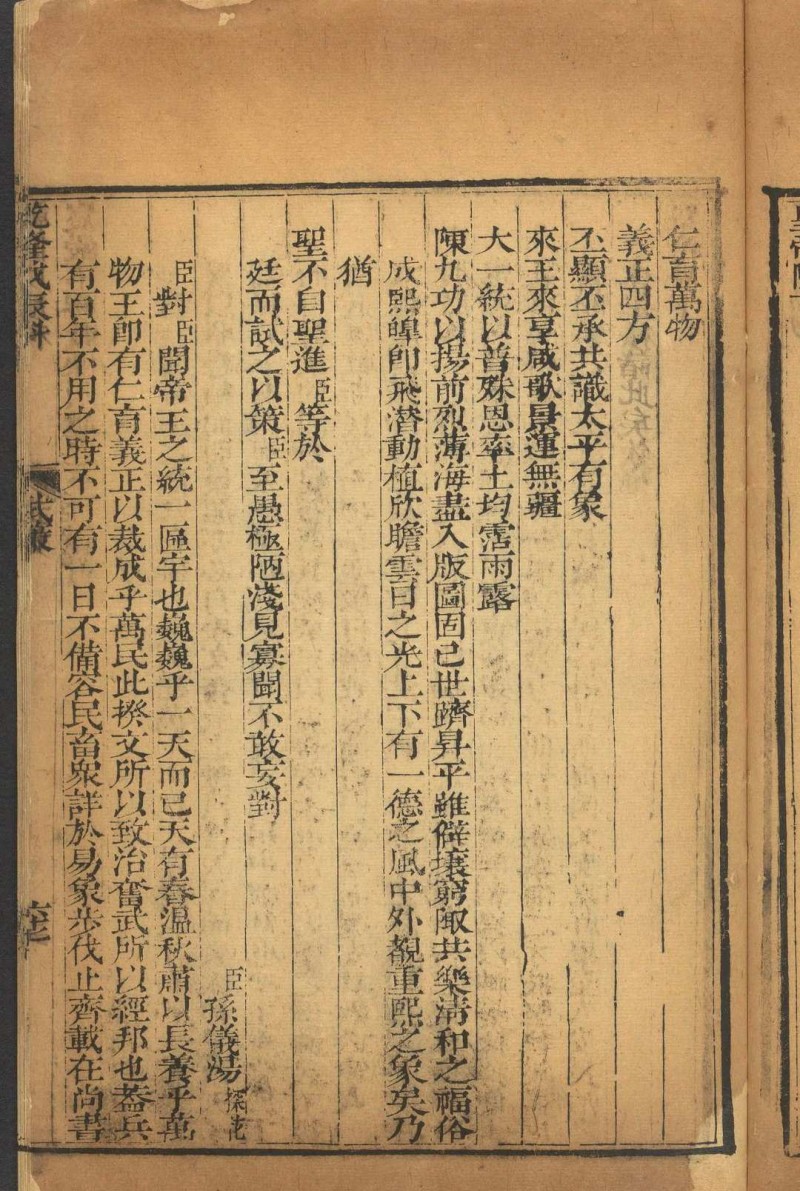 仁育萬物
義正四方
丕顯丕承共識太平有象
來王來享咸歌景運無疆
大一統以普殊恩率土均霑雨露
陳九功以揚前烈薄海盡入版圖固已世躋昇平雖僻壤窮陬共樂清和之福俗
成熙皡即飛潛動植欣瞻雲日之光上下有一德之風中外覩重熙之象矣乃
猶
聖不自聖進臣等於
廷而試之以策臣至愚極陋淺見寡聞不敢妄對
臣孫儀湯 探花
臣對臣聞帝王之統一區宇也巍巍乎一天而已天有春溫秋肅以長養乎萬
物王即有仁育義正以裁成乎萬民此揆文所以致治奮武所以經邦也蓋兵
有百年不用之時不可有一日不備容民畜衆詳於易象步伐止齊載在尚書
乾隆戊辰科 武殿